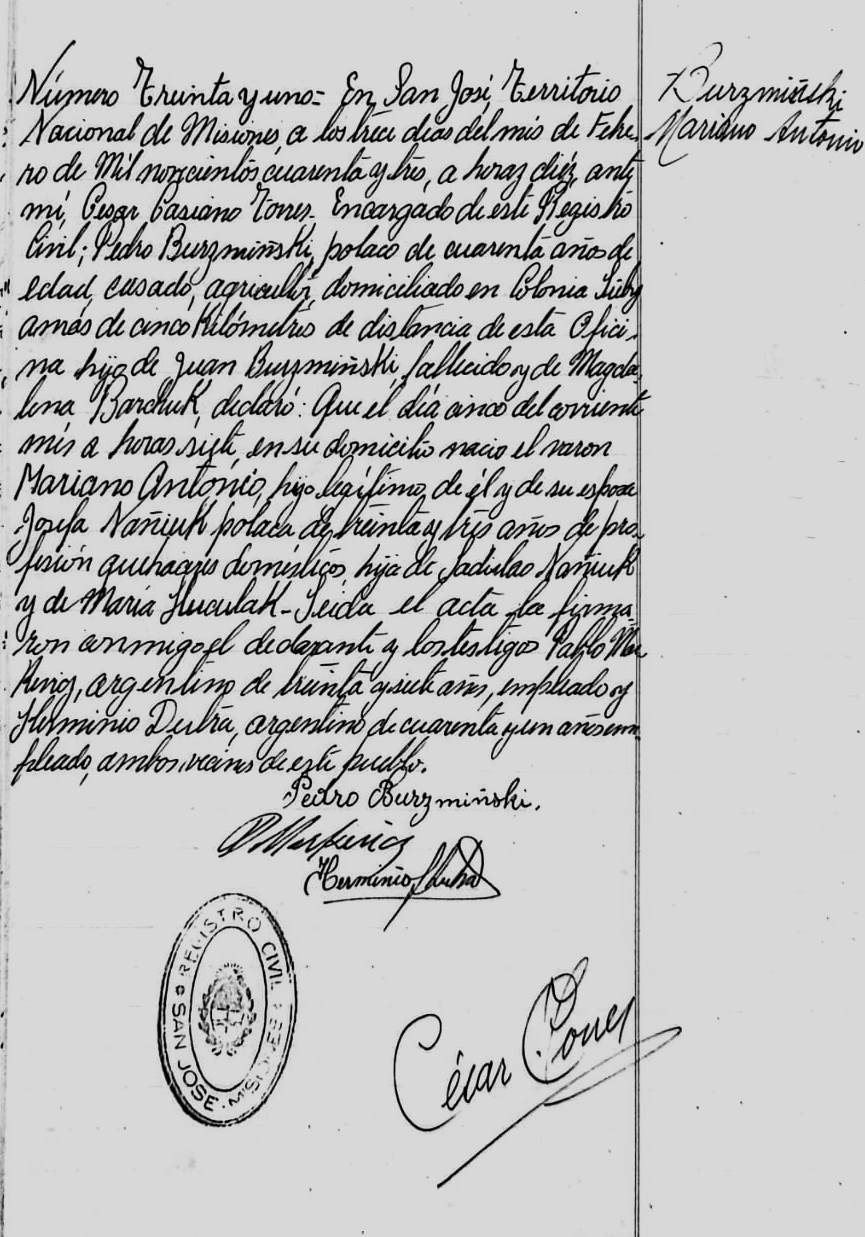 Número Treinta y uno= En San José, Territorio
Nacional de Misiones, a los trece dias del mes de Febre-
ro de Mil novecientos cuarenta y tres, a horas diéz, ante
mí, Cesar Casiano Torres. Encargado de este Registro
Civil; Pedro Burzmiñski, polaco de cuarenta años de
edad, casado, agricultor, domiciliado en Colonia
a más de cinco Kilómetros de distancia de esta Ofici-
na hijo de Juan Burzmiñski, fallecido y de Magda-
lena Barchuk, declaró: Que el día cinco del corriente
mes a horas siete, en su domicilio nacio el varon
Mariano Antonio, hijo legítimo de él y de su esposa
Josefa Nañiuk polaca de treinta y tres años de pro-
fesión quehaceres domésticos, hija de Ladislao Nañiuk
y de María Huculak- Leida el acta la firma-
ron conmigo el declarante y los testigos Pablo
argentino de treinta y siete años, empleado y
Herminio Dutra, argentino de cuarenta y un años em-
pleado, ambos vecinos de este pueblo.
Pedro Burzmiñski.
Herminio Dutra
César Torres
REGISTRO CIVIL
SAN JOSE - MISIONES
Burzmiñski
Mariano Antonio